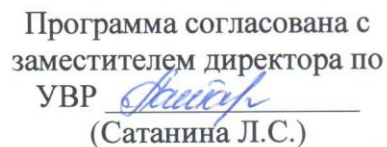 Программа согласована с
заместителем директора по
УВР
(Сатанина Л.С.)